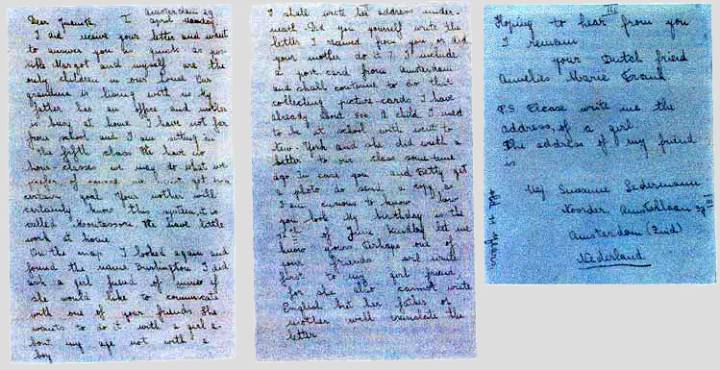 Amsterdam 29
Dear Juanita I April Monday
I did receive your letter and want
to answer you as quick as pos
sible Margot and myself are the
only children in our house Our
grandma is living with us My
father has an office and mother
is busy at home. I have not far
from school and I am sitting in
the fifth class We have no
hour-classes we may do what we
prefer of course we must get to a
certain goal Your mother will
certainly know this system, it is
called Montessori We have little
work at home
On the map I looked again and
found the name Burlington. I did
ask a girl friend of mine if
she would like to communicate
with one of your friends She
wants to do it with a girl a-
bout my age not with a
boy
II
I shall write her address under-
neath Did you yourself write the
letter I received from you, or did
your mother do it? I include
a post-card from Amsterdam
and shall continue to do that
collecting picture-cards I have
already A child I used
to be at school with went to
New-York and she did write a
letter to our class some time
ago. In case you and Betty get
a photo do send a copy as
I am curious to know how
you look My birthday is the
12th of June Kindly let me
know yours Perhaps one of
your friends will write
first to my girl friend
for she also cannot write
English but her father or
mother will translate the
letter
III
Hoping to hear from you
I remain
your Dutch friend
Annelies Marie Frank
P.S. Please write me the
address, of a girl.
The address of my friend
is
Susanne Ledermann
Noorder Amstellaan 37 III
Amsterdam (Zuid)
Nederland